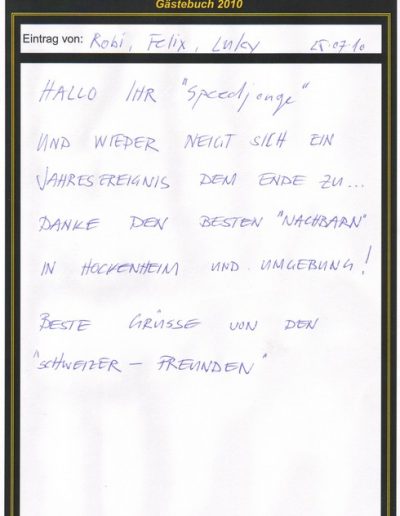 Gästebuch 2010
Eintrag von: Robi, Felix, Luky 25.07.10
HALLO IHR "Speedjonge"
UND WIEDER NEIGT SICH EIN
JAHRESEREIGNIS DEM ENDE ZU...
DANKE DEN BESTEN "NACHBARN"
IN HOCKENHEIM UND UMGEBUNG!
BESTE GRÜSSE VON DEN
"SCHWEIZER - FREUNDEN"